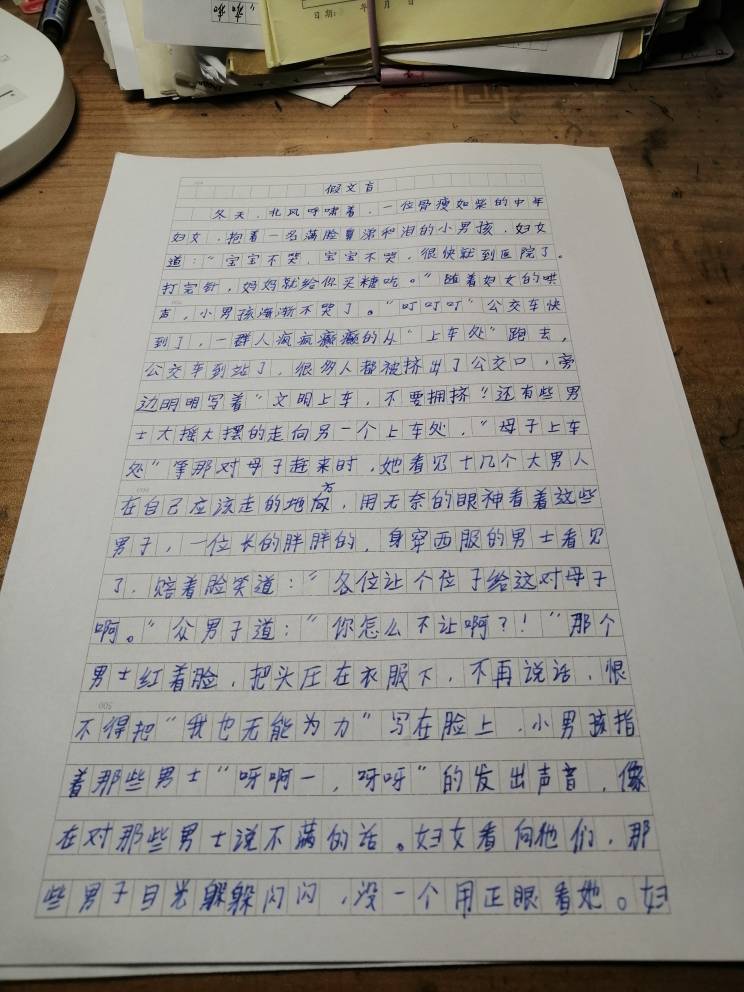 日期: 年 月 日
假文盲
冬天，北风呼啸着，一位骨瘦如柴的中年
妇女，抱着一名满脸鼻涕和泪的小男孩，妇女
道：“宝宝不哭，宝宝不哭，很快就到医院了。
打完针，妈妈就给你买糖吃。”随着妇女的哄
声，小男孩渐渐不哭了。“叮叮叮”公交车快
到了，一群人疯疯癫癫的从“上车处”跑去，
公交车到站了，很多人都被挤出了公交口，旁
边明明写着“文明上车，不要拥挤”还有些男
士大摇大摆的走向另一个上车处，“母子上车
处”等那对母子赶来时，她看见十几个大男人
在自己应该走的地方，用无奈的眼神看着这些
男子，一位长的胖胖的，身穿西服的男士看见
了，赔着脸笑道：“各位让个位子给这对母子
啊。”众男子道：“你怎么不让啊？！”那个
男士红着脸，把头压在衣服下，不再说话，恨
不得把“我也无能为力”写在脸上，小男孩指
着那些男士“呀啊一，呀呀”的发出声音，像
在对那些男士说不满的话。妇女看向他们，那
些男子目光躲躲闪闪，没一个用正眼看她。妇